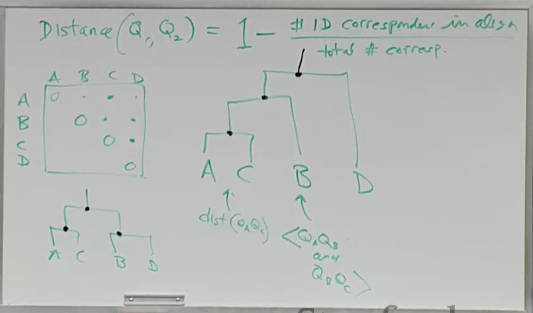 Distance (Q1, Q2) = 1 - # ID correspondences in align
total # corresp.
A B C D
A 0
B 0
C 0
D 0
A C B D
dist(QAQC)
<QAQB
and
QBQC>
A C B D